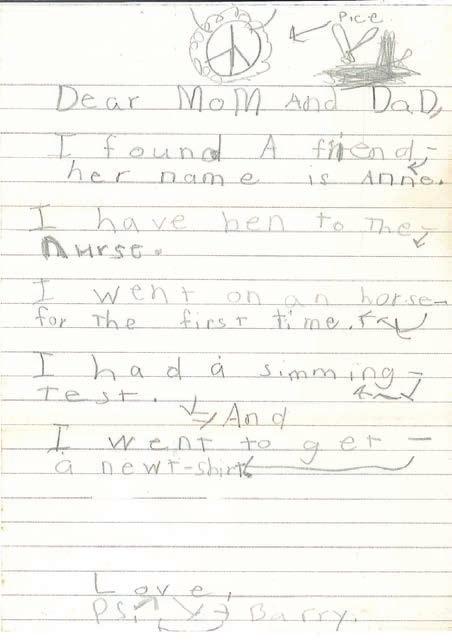 Pice
Dear MoM And DaD,
I found A friend,
her name is Anne.
I have ben to The
nurse.
I went on an horse
for The first time.
I had a simming
Test.
And
I went to get
a new t-shirt
Love,
PS. Barry.